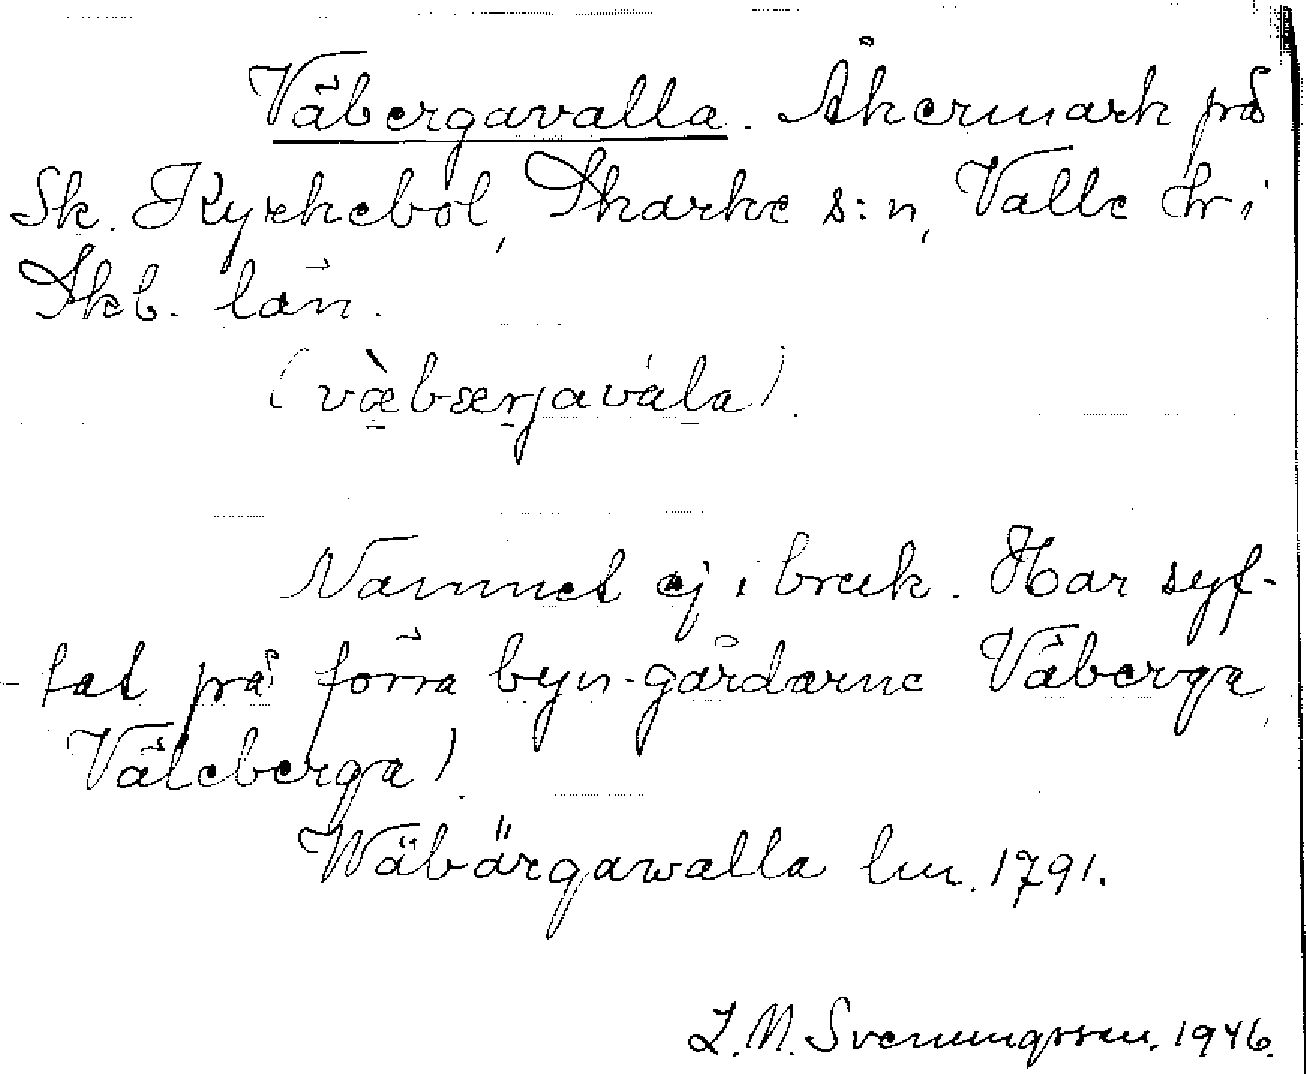 Väbergavalla. Åkermark på
Sk. Kyrkebol, Skarke s:n, Valle hr i
Skb. län.
(væ̀bærjavála).
Namnet ej i bruk. Har syf-
-tat på förra byn-gårdarne Väberga,
Väleberga).
Wäbärgawalla lm. 1791.
L. M. Svenungsson. 1946.